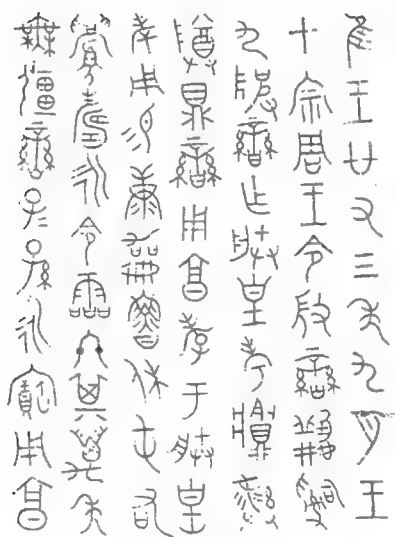 隹王廿又三年九月王
才宗周王令𢼸䜌𤔲
九陂䜌乍朕皇考𩰬彝
尊鼎䜌用享孝于朕皇
考用易康魯休屯右
眉壽永令霝冬其萬年
無彊䜌子孫永寶用享